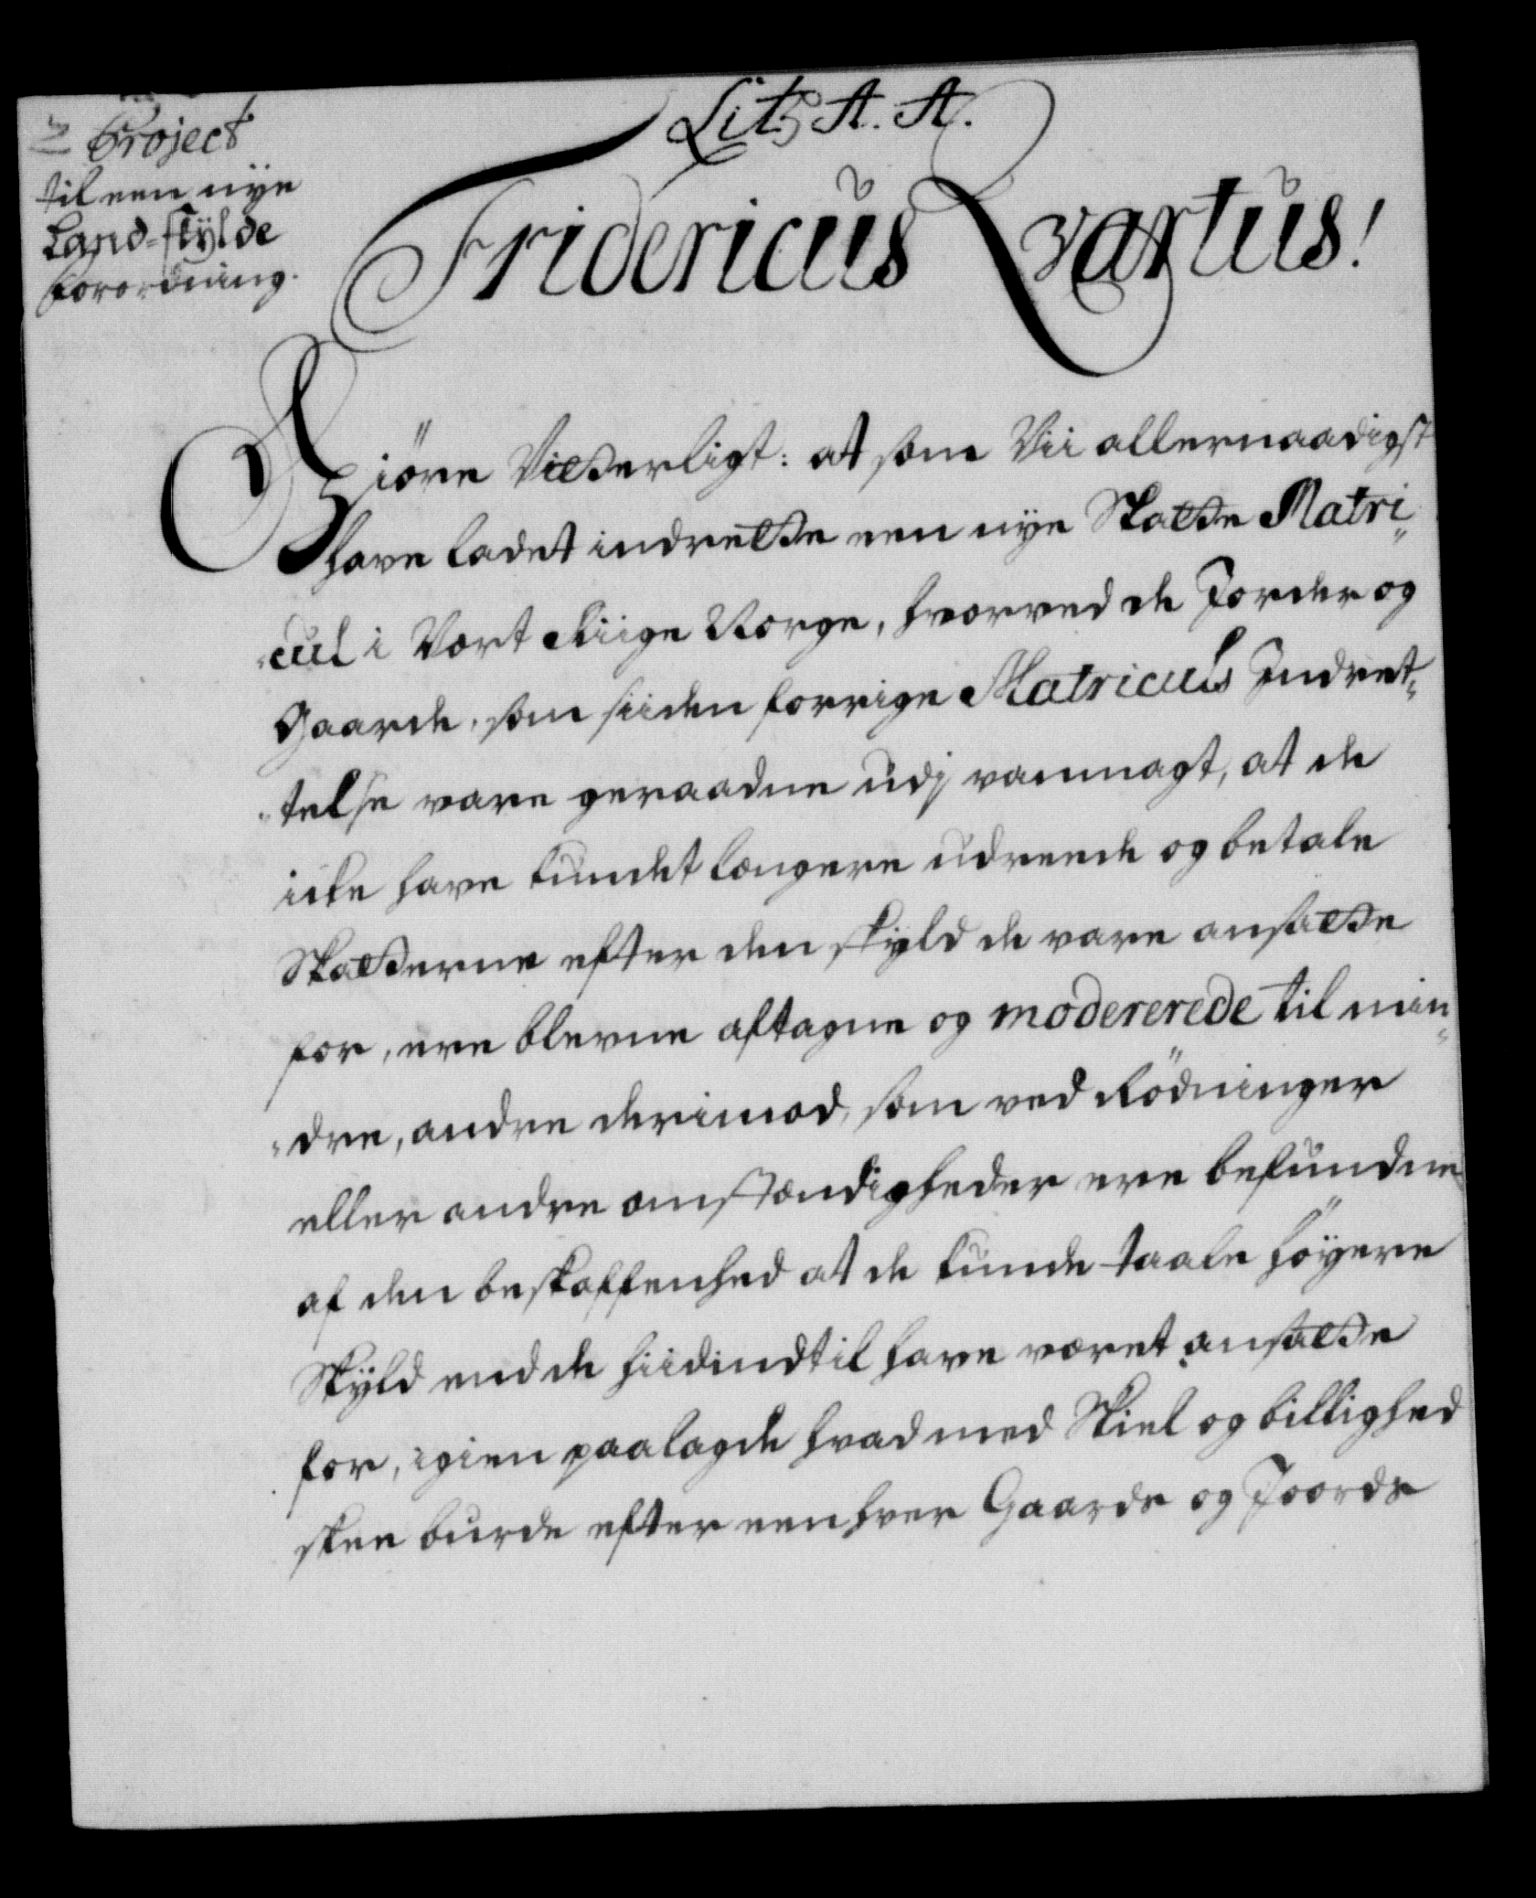 Litz A. A.
Project
til een nye
Land=skylde
forordning.
Fridericus Qvartus!
Giöre Vitterligt: at som Vii allernaadigst
have ladet indrette een nye Skatte Matri„
„cul i Vort Riige Norge, hvorved de Jorder og
Gaarde, som siiden forrige Matriculs Indret„
„telse vare geraadne udj vanmagt, at de
icke have kundet længere udreede og betale
Skatterne efter den skyld de vare ansatte
for, ere blevne aftagne og modererede til min„
„dre, andre derimod, som ved Rödninger
eller andre omstændigheder ere befundne
af den beskaffenhed at de kunde taale höyere
Skyld end de hiidindtil have været ansatte
for, igien paalagde hvad med Skiel og billighed
skee burde efter eenhver Gaards og Joords